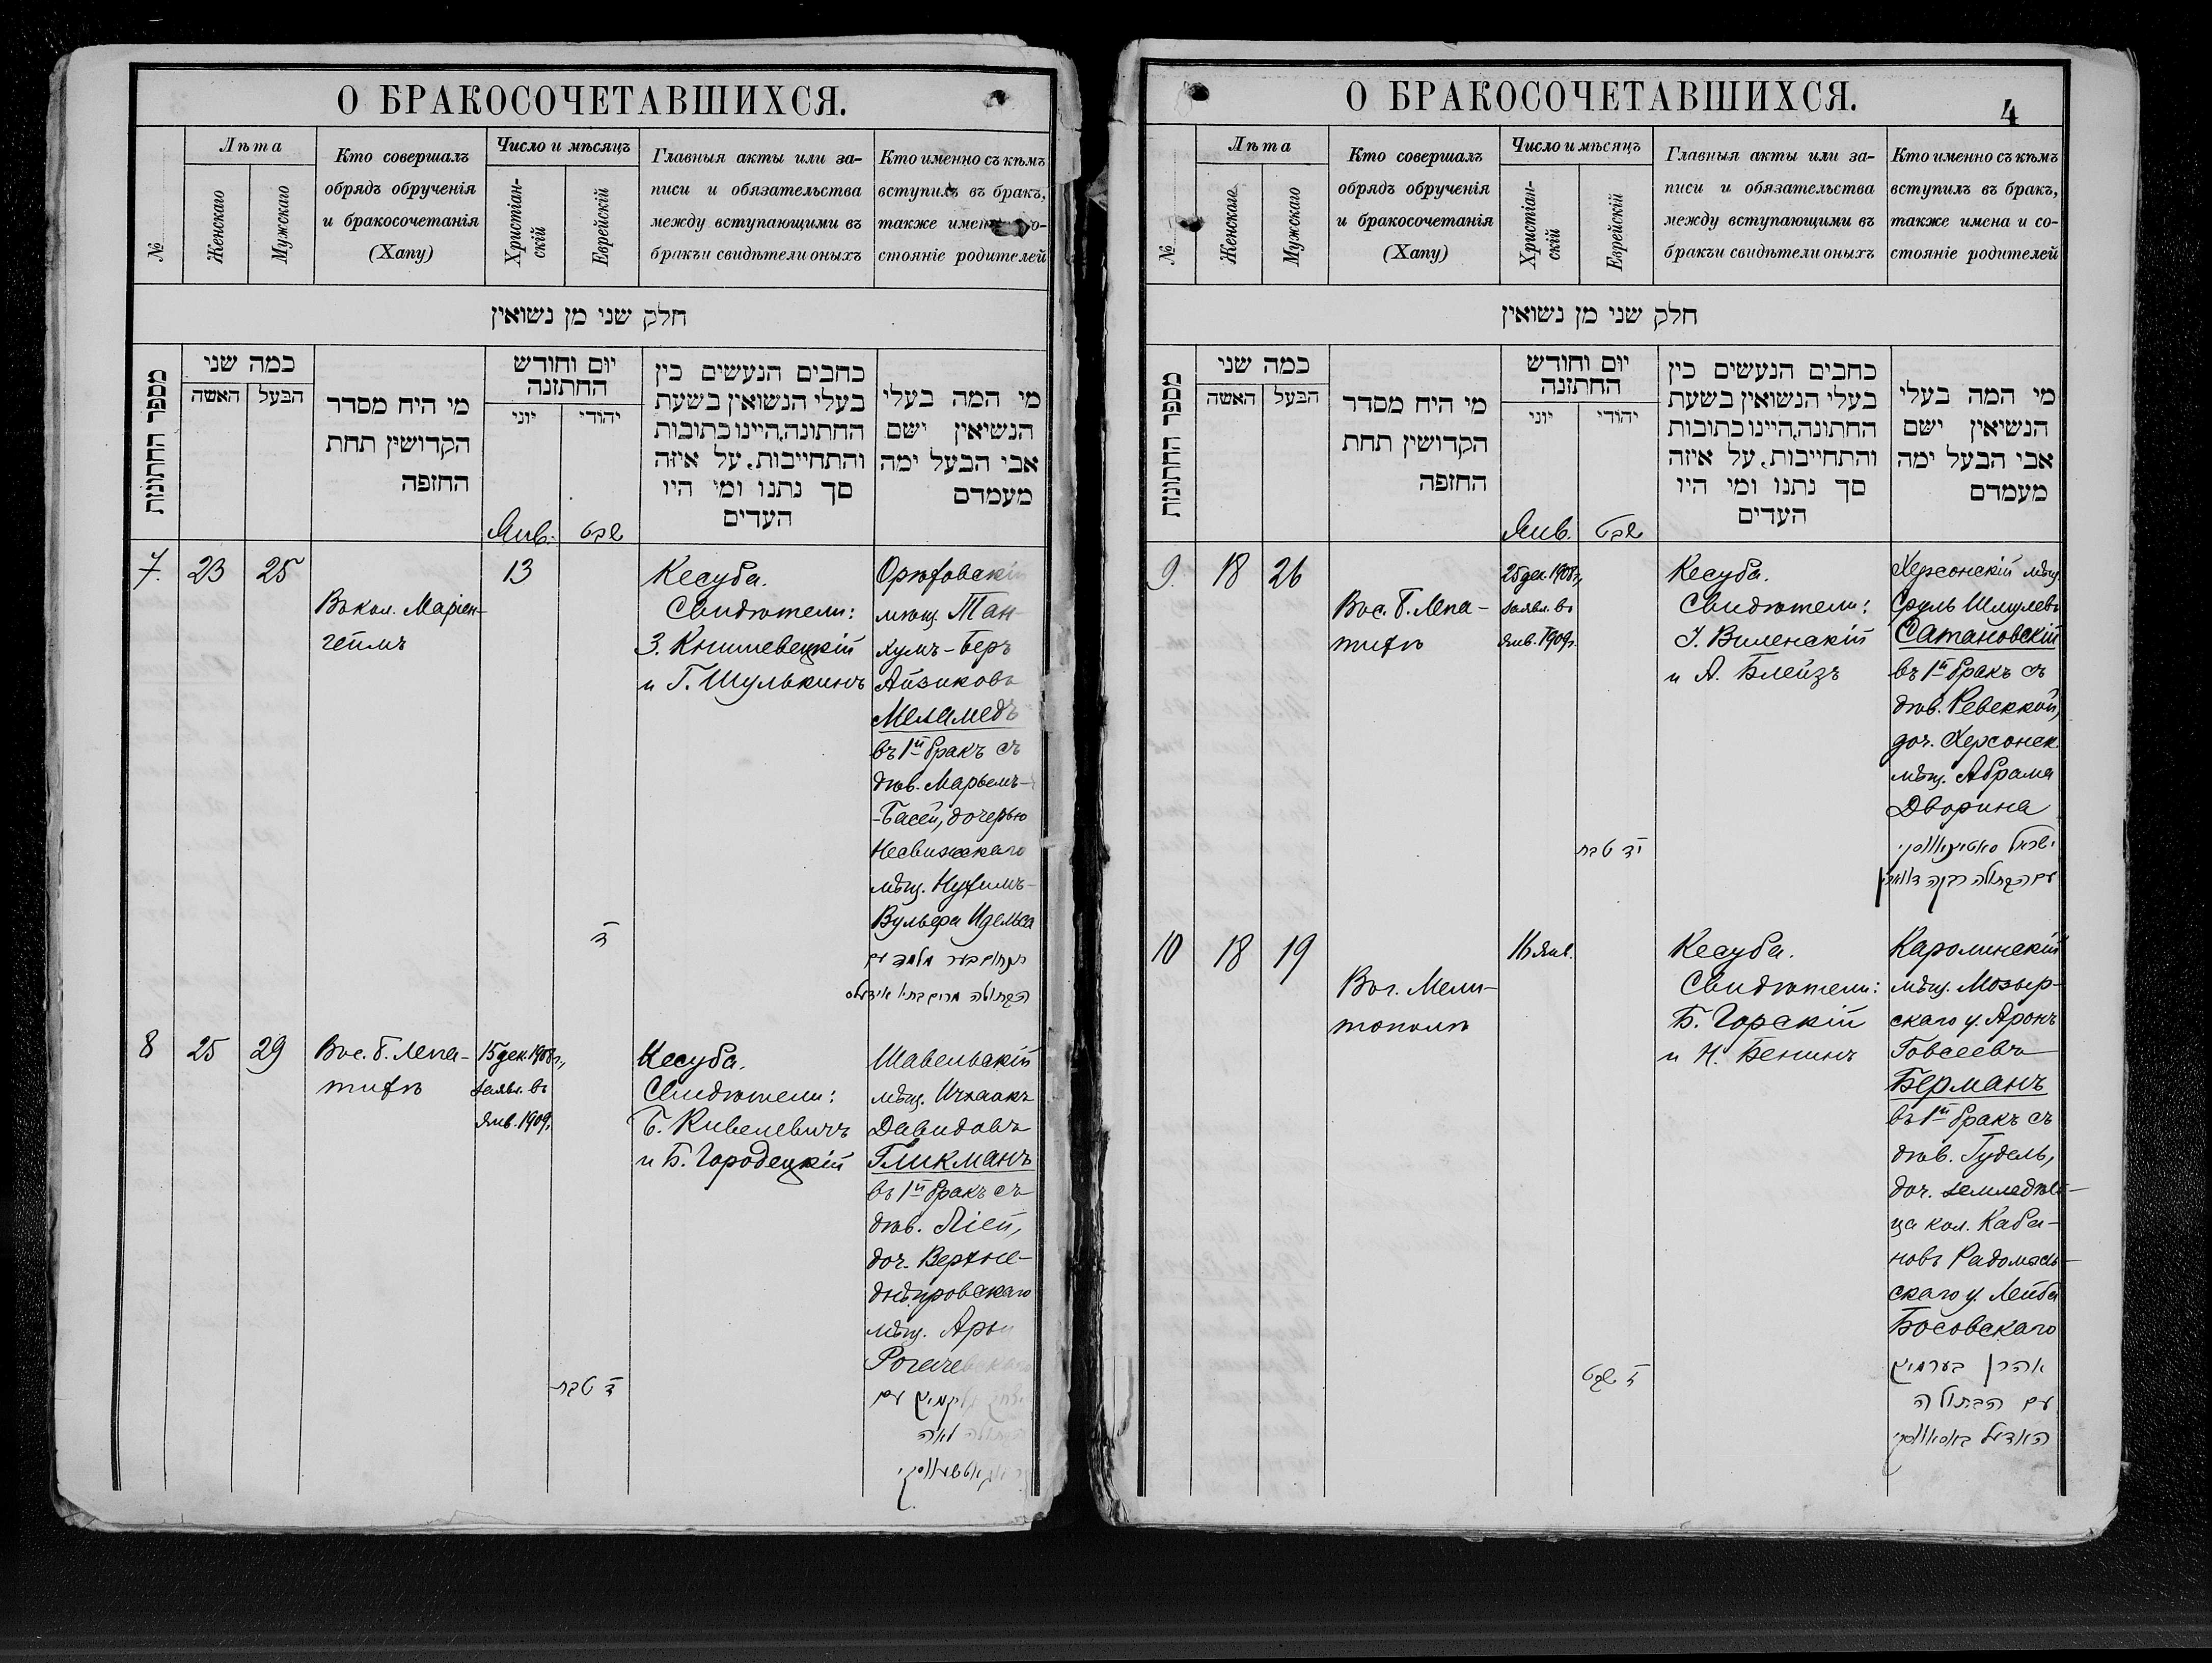 О БРАКОСОЧЕТАВШИХСЯ.
№
Лѣта
Женскаго
Мужскаго
Кто совершалъ
обрядъ обрученія
и бракосочетанія
(Хапу)
Число и мѣсяцъ
Христіан-
скій
Еврейскій
Главныя акты или за-
писи и обязательства
между вступающими въ
бракъи свидѣтели оныхъ
Кто именно съ кѣмъ
вступилъ въ бракъ,
также имен
стояніе родителей
חלק שני מן נשואין
מספר החתונות
כמה שני
האשה
הבעל
מי היח מסדר
הקדושין תחת
החזפה
יום וחודש
החתזנה
יוני
יהודי
כחבים הנעשים כין
בעלי הנשואין בשעת
החתונה,היינו כתובות
והתחייבות, על איזה
סך נתנו ומי היו
העדים
מי המה בעלי
הנשיאין ישם
אבי הבעל ימה
מעמדם
Янв.
שבט
7.
23
25
Въ кол. Маріен-
геймъ
13
Кесуба.
Свидѣтели:
З. Кнышевецкій
и Г. Шулькинъ
Орѣховскій
мѣщ. Тан-
хумъ-Беръ
Айзиковъ
Меламедъ
въ 1й бракъ съ
дѣв. Марьемъ-
-Басей, дочерью
Несвижскаго
мѣщ. Нухимъ-
Вульфа Идельса
ד
8
25
29
Вос. б. Лепа-
тихѣ
15 дек. 1908 г.,
заявл. въ
янв. 1909.
Кесуба.
Свидѣтели:
Б. Кивелевичъ
и Б. Городецкій
Шавельскій
мѣщ. Ицхаакъ
Давидовъ
Гликманъ
въ 1й бракъ съ
дѣв. Ліей,
доч. Верхне-
днѣпровскаго
мѣщ. Арьи
Рогачевскаго
ד טבת
О БРАКОСОЧЕТАВШИХСЯ.
4
№
Лѣта
Женскаго
Мужскаго
Кто совершалъ
обрядъ обрученія
и бракосочетанія
(Хапу)
Число и мѣсяцъ
Христіан-
скій
Еврейскій
Главныя акты или за-
писи и обязательства
между вступающими въ
бракъи свидѣтели оныхъ
Кто именно съ кѣмъ
вступилъ въ бракъ,
также имена и со-
стояніе родителей
חלק שני מן נשואין
מספר החתונות
כמה שני
האשה
הבעל
מי היח מסדר
הקדושין תחת
החזפה
יום וחודש
החתזנה
יוני
יהודי
כחבים הנעשים כין
בעלי הנשואין בשעת
החתונה,היינו כתובות
והתחייבות, על איזה
סך נתנו ומי היו
העדים
מי המה בעלי
הנשיאין ישם
אבי הבעל ימה
מעמדם
Янв.
שבט
9.
18
26
Вос. б. Лепа-
тихѣ
25 дек. 1908 г.,
заявл. въ
янв. 1909 г.
Кесуба.
Свидѣтели:
І. Виленскій
и А. Блейзъ
Херсонскій мѣщ.
Сруль Шмулевъ
Сатановскій
въ 1й бракъ съ
дѣв. Ревеккой,
доч. Херсонск.
мѣщ. Абрама
Дворина
יד טבת
10
18
19
Въ г. Мели-
тополѣ
16 янв.
Кесуба.
Свидѣтели:
Б. Горскій
и Н. Бенинъ
Каролинскій
мѣщ. Мозыр-
скаго у. Аронъ
Говсеевъ
Берманъ
въ 1й бракъ съ
дѣв. Гудель,
доч. земледѣль-
ца кол. Каба-
новъ Радомысль-
скаго у. Лейба
Босовскаго
שבט
אהרן בערמאן
עם הבתולה
האדעל באסאווסקי